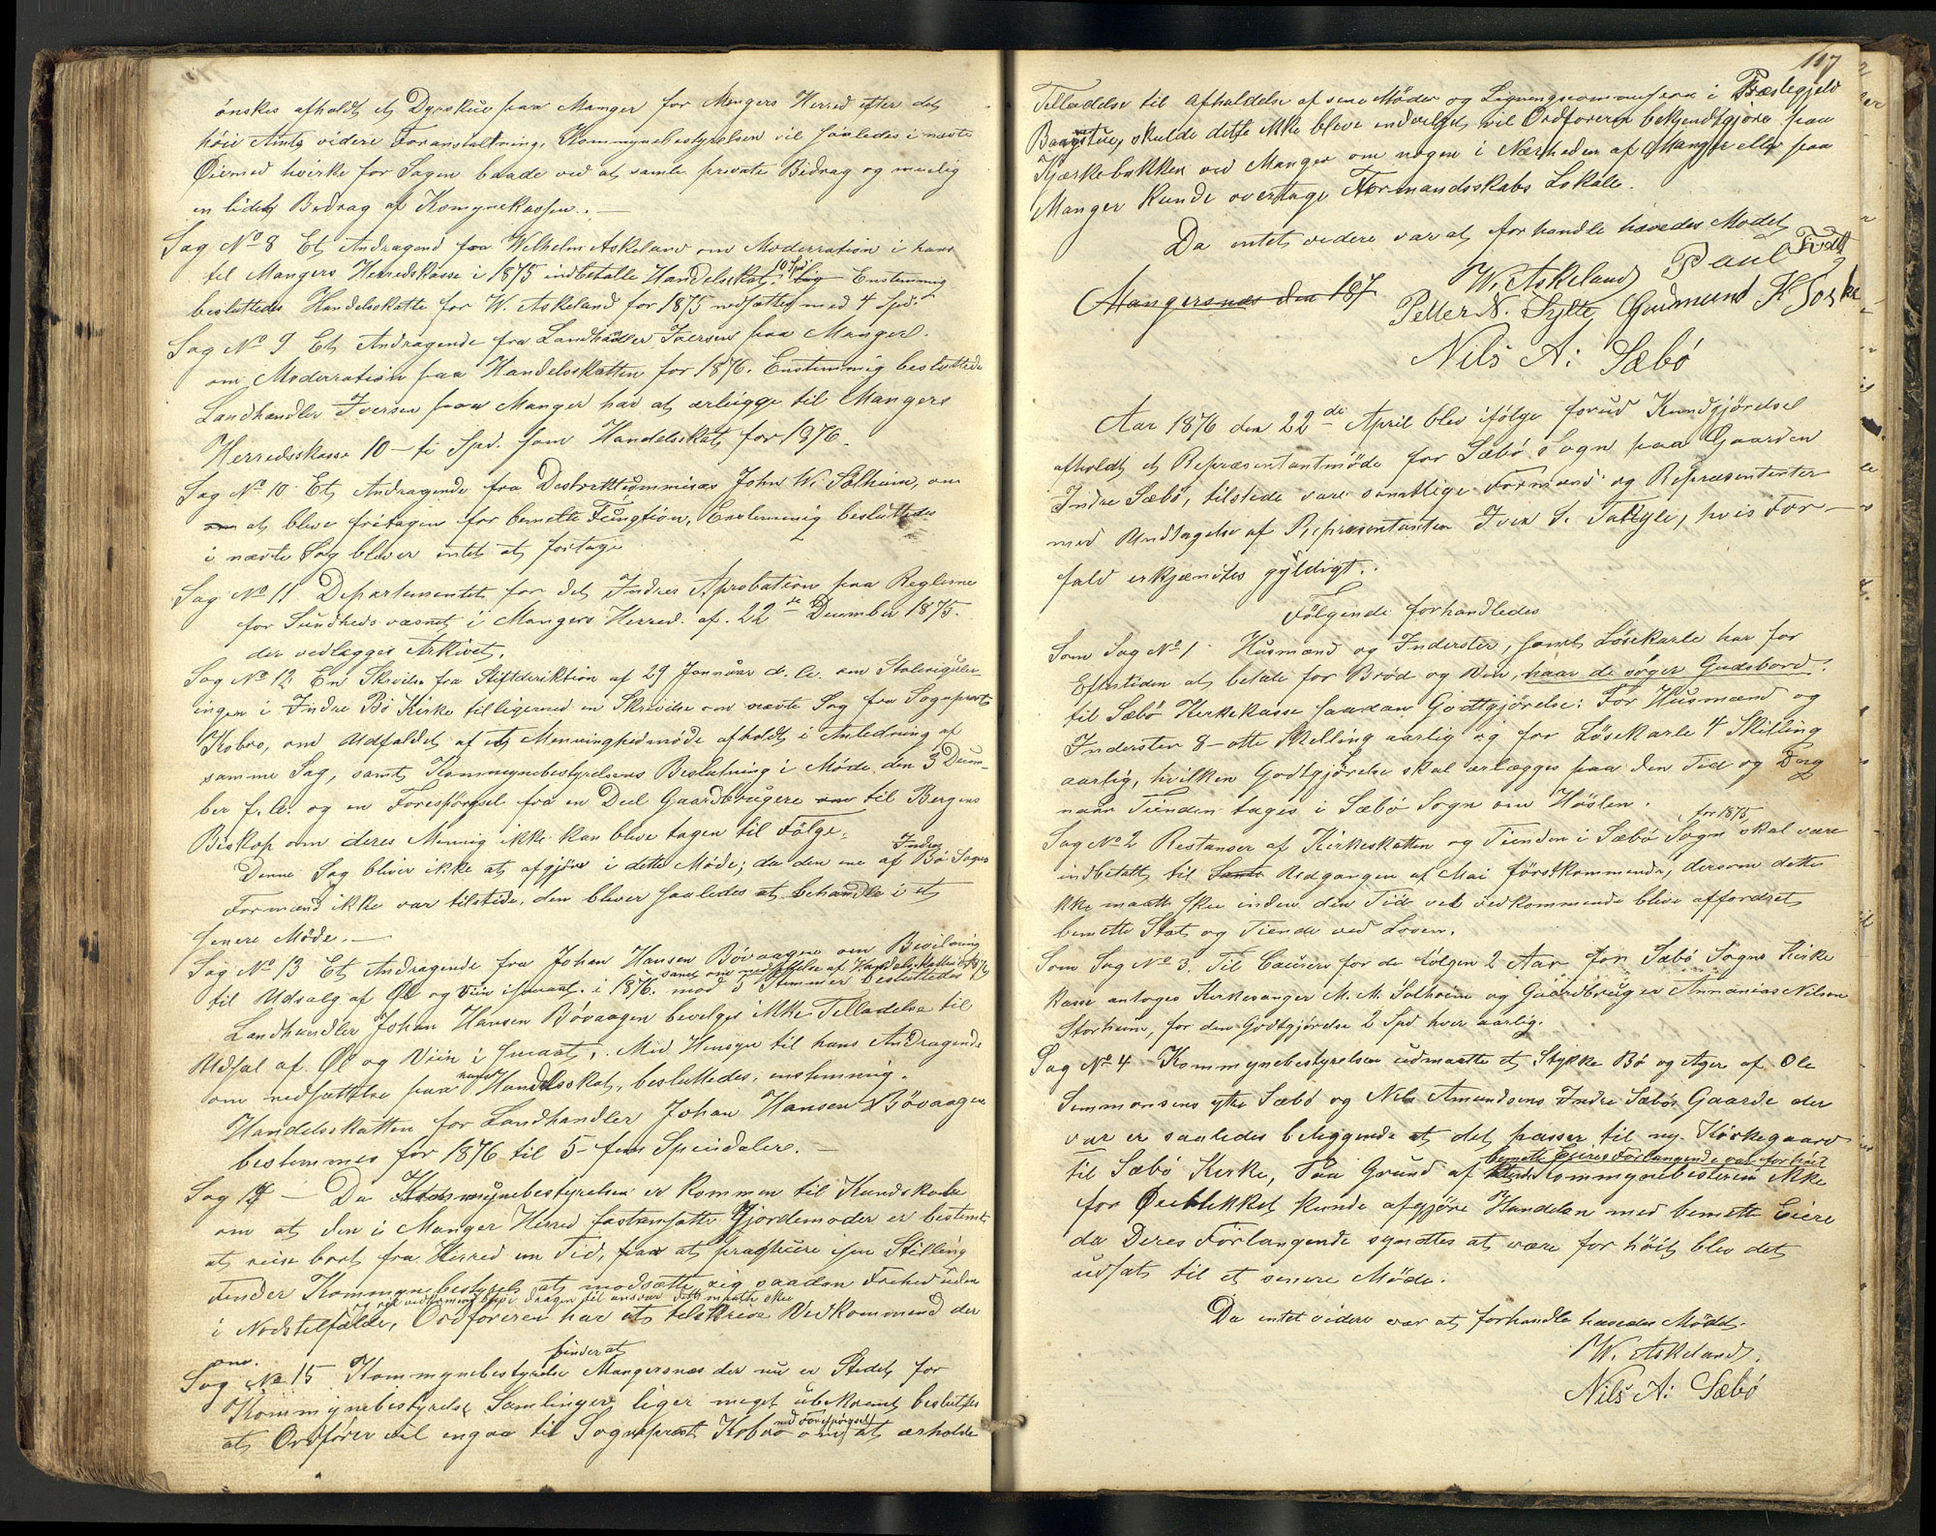 ønskes afholdt et Dyrskue paa Manger for Mangers Herred efter det
høie Amts videre Foranstaltning, Kommynebestyrelsen vil saaledes i nævte
Øiemed hvirke for Sagen baade ved at samle private Bidrag og muelig
en lidet Bedrag af Komynekassen. —
Sag No 8 Et Andragend fra Wilhelm Askeland om Moderration i hans
til Mangers Herredskasse i 1875 indbetalte Handelsskat 10 Spd. Enstemmig
besluttedes Handelsskatte for W. Askeland for 1875 nedsættes med 4 Spd.
Sag No 9 Et Andragende fra Landhandler Iversen paa Manger.
om Moderration paa Handelsskatten for 1876. Enstemmig besluttede
Landhandler Iversen paa Manger har at ærlægge til Mangers
Herredskasse 10 – ti Spd. som Handelsskat for 1876.
Sag No 10 Et Andragende fra Destriktcommisær John W. Solheim, om
at blive fritagen for bemelte Fungtion, Enstemmig besluttedes
i nævte Sag bliver intet at fortage
Sag No 11 Departementet for det Indres Aprobation paa Reglerne
for Sundhedsvæsnet i Mangers Herred af 22de December 1875.
der vedlægges Arkivet.
Sag No 12 En Skrivelse fra Stiftderiktion af 29 Januar d. A. om Stolereguler-
ingen i Indre Bø Kirke tilligemed en Skrivelse om nævte Sag fra Sognepræst
Kobro, om Udfaldet af et Menninghedsmøde afholdt i Anledning af
samme Sag, samt Kommynebestyrelsens Beslutning i Møde den 3 Decem-
ber f. A. og en Forespørgsel fra en Deel Gaardbrugere til Bergens
Biskop om deres Mening ikke kan blive tagen til Følge.
Denne Sag bliver ikke at afgjøre i dette Møde; da den ene af Indre Bø Sogns
Formænd ikke var tilstede, den bliver saaledes at behandle i et
senere Møde. —
Sag No 13 Et Andragende fra Johan Hansen Bøvaagen om Bevilgning
samt om nedsættelse af Handelsskatten for 1876
til Udsalg af Øl og Viin i smaat. i 1876. mod 5 Stemmer besluttedes
Landhandler Johan Hansen Bøvaagen bevelges ikke Telladelse til
Udsal af Øl og Viin i smaat. Med Hensyn til hans Andragende
om nedsættelse paa hans Handelsskat, besluttedes, enstemmig.
Handelsskatten for Landhandler Johan Hansen Bøvaagen
bestemmes for 1876 til 5 – fem Speindalere. —
Sag 14 — Da Kommynebestyrelsen er kommen til Kundskabe
om at den i Manger Herred fastansatte Gjordemoder er bestemt
at reise bort fra Herred en Tid, for at practicere i sin Stilling
Finder Kommynebestyrels at modsætte sig saadan Frihed uden
i Nødstelfælde, Ordføreren har at telskrive Vedkommend der
om.
Sag No 15 Kommynebestyrelse finder at Mangersnæs der nu er Stedet for
Kommynebestyrelse Samlinger liger meget ubekvemt besluttes
at Ordfører vil ingaa til Sognepræst Kobro med Forespørgsel om at ærholde
117
Telladelse til Afholdelse af sine Møder og Ligningscommission i Præstegjeld
Baarstue, skulde dette ikke bleve indvelget, vil Ordføreren bekjendtgjøre paa
Kjærkebakken ved Manger om nogen i Nærheden af Manger eller paa
Manger kunde overtage Formandsskabs Lokale.
Da intet videre var at forhandle hævedes Mødet
W. Askeland Paul Fvdtt
Mangersnæs den 187
Petter N. Sylte, Gudmund K Toska
Nils A: Sæbø
Aar 1876 den 22de April blev ifølge forud Kundgjørelse
afholdt et Repræsentantmøde for Sæbø Sogn paa Gaarden
Indre Sæbø, tilstede vare samtlige Formænd og Repræsententer
med Undtagelse af Repræsentanten Iver S. , hvis For-
fald erkjændtes gyldigt.
Følgende forhandledes
Som Sag No 1 Husmænd og Inderster, samt Løsekarle har for
Eftertiden at betale for Brød og Viin, naar de søger Gudsbord.
til Sæbø Kirkekasse saadan Godtgjørelse: For Husmænd og
Indersten 8 – otte Skelling aarlig og for Løsekarle 4 Skilling
aarlig, hvilken Godtgjørelse skal ærlægges paa den Tid og Dag
naar Tienden tages i Sæbø Sogn om Høsten.
Sag No 2 Restanser af Kirkeskatten og Tienden i Sæbø Sogn for 1875 skal være
indbetalt til Udgangen af Mai førstkommende, dersom dette
ikke maatte skee inden den Tid vel vedkommende blive affordret
bemelte Skat og Tiende ved Loven.
Som Sag No 3. Til Causion for de følgen 2 Aar for Sæbø Sogns Kirke
kasse antoges Kirkesanger M. M. Solheim og Gaardbruger Annanias Nilsen
Storheim, for den Godtgjørelse 2 Spd hver aarlig.
Sag No 4 Kommynebestyrelsen udmaatte et Stykke Bø og Ager af Ole
Simmonsens ytre Sæbø og Nils Amundsens Indre Sæbøs Gaarde der
var er saaledes beliggende at det passer til ny Kirkegaard
til Sæbø Kirke, Paa Grund af bemelte Eieres Forlangende var for høit Kommynebesterein ikke
for Øieblikket kunde afgjøre Handelen med bemelte Eiere
da Deres Forlangende syndtes at være for høit blev det
udsat til et senere Møde.
Da intet videre var at forhandle hævedes Mødet.
W. Askeland.
Nils A: Sæbø